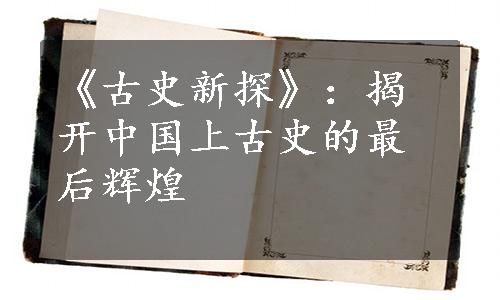 《古史新探》：揭
开中国上古史的最
后辉煌